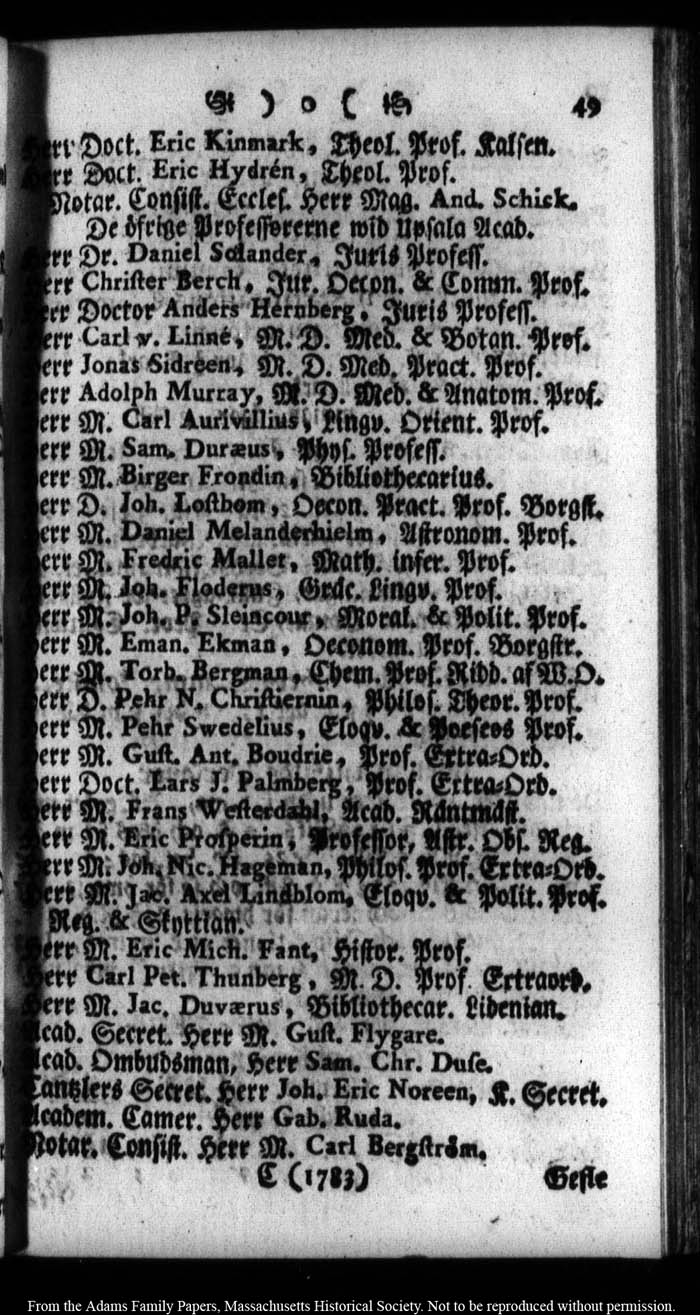 ) o ( 49
Herr Doct. Eric Kinmark, Theol. Prof. Kalsen.
Herr Doct. Eric Hydrén, Theol. Prof.
Notar. Consist. Eccles. Herr Mag. And. Schick.
De öfrige Professorerne wid Upsala Acad.
Herr Dr. Daniel Solander, Juris Profess.
Herr Christer Berch, Jur. Oecon. & Comm. Prof.
Herr Doctor Anders Hernberg, Juris Profess.
Herr Carl v. Linné, M. D. Med. & Botan. Prof.
Herr Jonas Sidreen, M. D. Med. Pract. Prof.
Herr Adolph Murray, M. D. Med. & Anatom. Prof.
Herr M. Carl Aurivillius, Lingv. Orient. Prof.
Herr M. Sam. Duræus, Phys. Profess.
Herr M. Birger Frondin, Bibliothecarius.
Herr D. Joh. Lostbom, Oecon. Pract. Prof. Borgst.
Herr M. Daniel Melanderhielm, Astronom. Prof.
Herr M. Fredric Mallet, Math. infer. Prof.
Herr M. Joh. Floderus, Græc. Lingv. Prof.
Herr M. Joh. P. Sleincour, Moral. & Polit. Prof.
Herr M. Eman. Ekman, Oeconom. Prof. Borgstr.
Herr M. Torb. Bergman, Chem. Prof. Ridd. af W.O.
Herr D. Pehr N. Christiernin, Philos. Theor. Prof.
Herr M. Pehr Swedelius, Eloqv. & Poeseos Prof.
Herr M. Gust. Ant. Boudrie, Prof. Extra-Ord.
Herr Doct. Lars J. Palmberg, Prof. Extra-Ord.
Herr M. Frans Westerdahl, Acad. Räntmäst.
Herr M. Eric Prosperin, Professor, Astr. Obs. Reg.
Herr M. Joh. Nic. Hageman, Philos. Prof. Extra-Ord.
Herr M. Jac. Axel Lindblom, Eloqv. & Polit. Prof.
Reg. & Skyttian.
Herr M. Eric Mich. Fant, Histor. Prof.
Herr Carl Pet. Thunberg, M. D. Prof. Extraord.
Herr M. Jac. Duværus, Bibliothecar. Lidenian.
Acad. Secret. Herr M. Gust. Flygare.
Acad. Ombudsman, Herr Sam. Chr. Duse.
Cantzlers Secret. Herr Joh. Eric Noreen, K. Secret.
Academ. Camer. Herr Gab. Ruda.
Notar. Consist. Herr M. Carl Bergström.
C (1783) Gefle
From the Adams Family Papers, Massachusetts Historical Society. Not to be reproduced without permission.